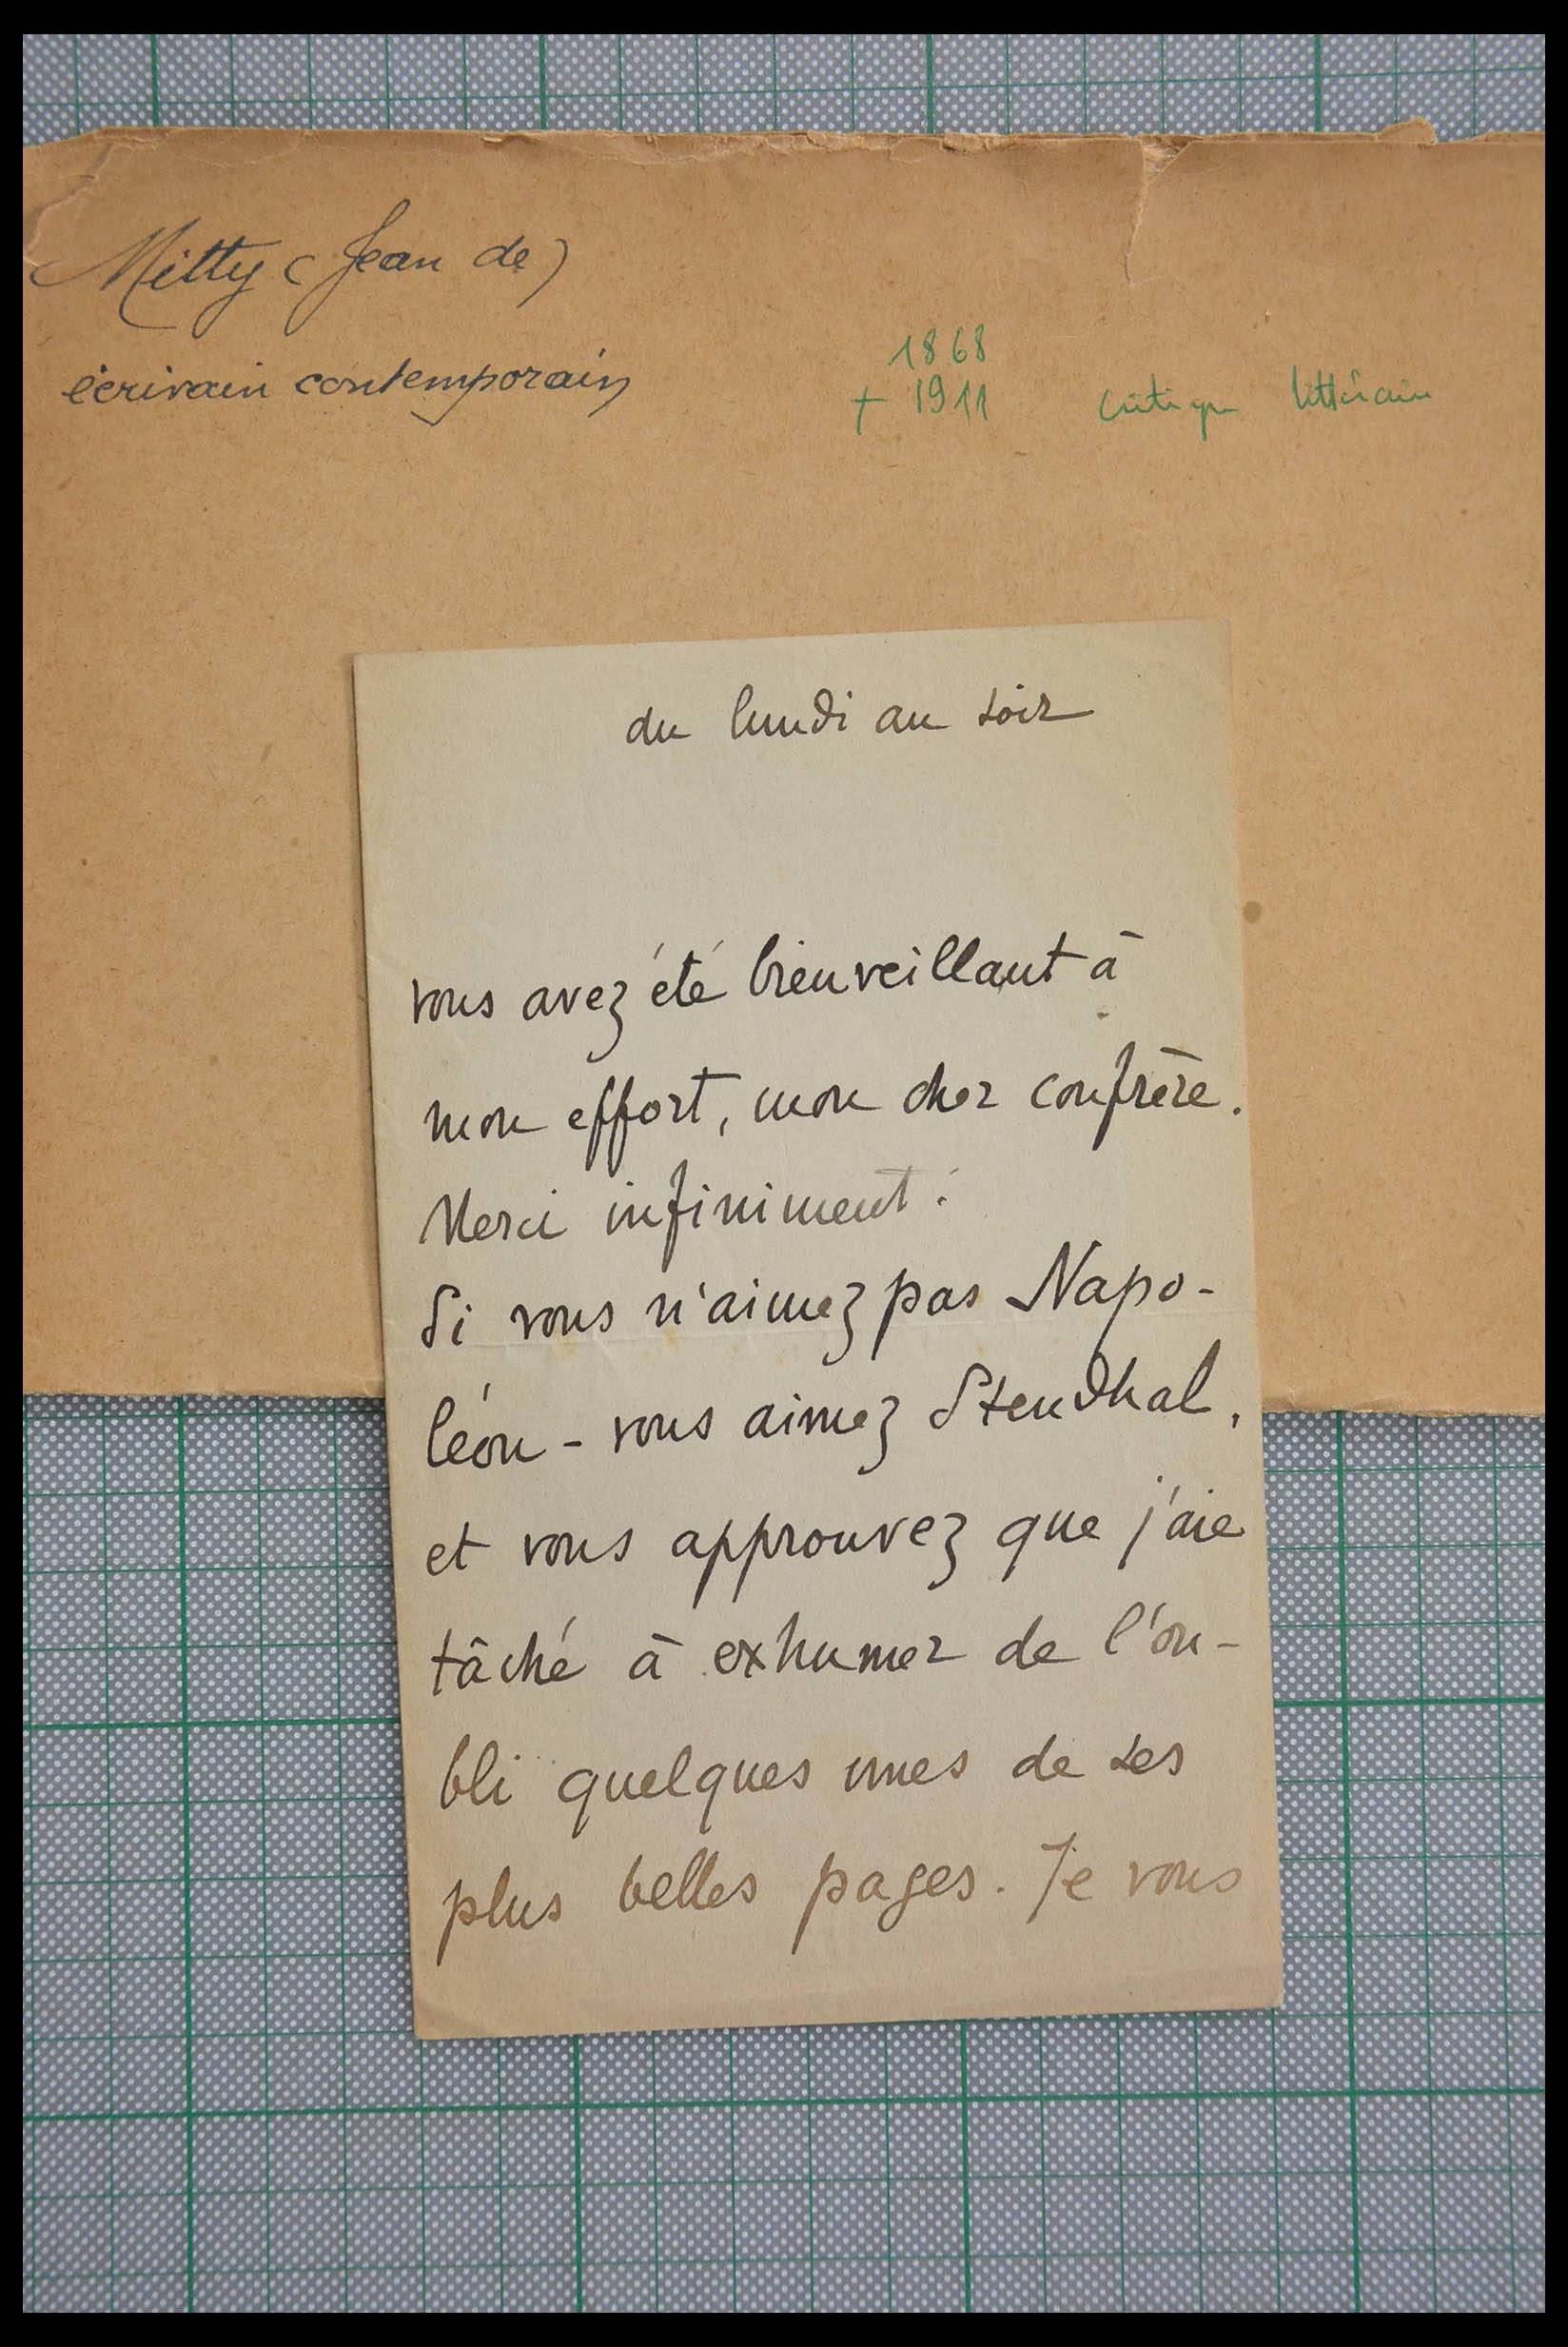 Mitty (Jean de)
écrivain contemporain
1868
+ 1911 critique littéraire
du lundi au soir
vous avez été bienveillant à
mon effort, mon cher confrère.
Merci infiniment.
Si vous n'aimez pas Napo-
léon - vous aimez Stendhal,
et vous approuvez que j'aie
tâché à exhumer de l'ou-
bli quelques unes de ses
plus belles pages. Je vous